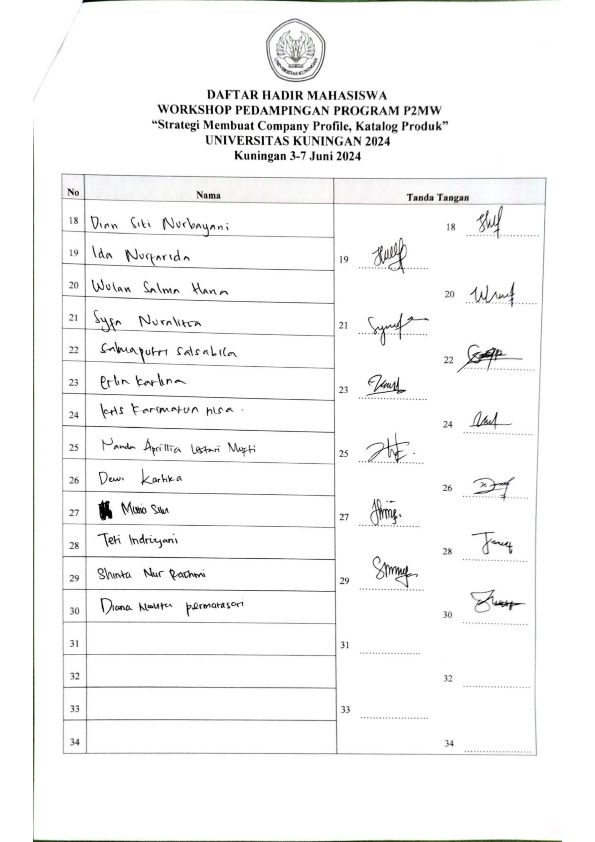 UNIVERSITAS KUNINGAN
DAFTAR HADIR MAHASISWA
WORKSHOP PEDAMPINGAN PROGRAM P2MW
“Strategi Membuat Company Profile, Katalog Produk”
UNIVERSITAS KUNINGAN 2024
Kuningan 3-7 Juni 2024
No Nama Tanda Tangan
18 Dian Siti Nurbayani 18
19 Ida Nurfarida 19
20 Wulan Salma Hana 20
21 Syifa Nuralitza 21
22 Salwaputri Salsabila 22
23 Erlin Karlina 23
24 Karimatun nisa 24
25 Nanda Aprillia Lestari Mufti 25
26 Dewi Kartika 26
27 27
28 Teti Indriyani 28
29 Shinta Nur Rachmi 29
30 Diana permatasari 30
31 31
32 32
33 33
34 34